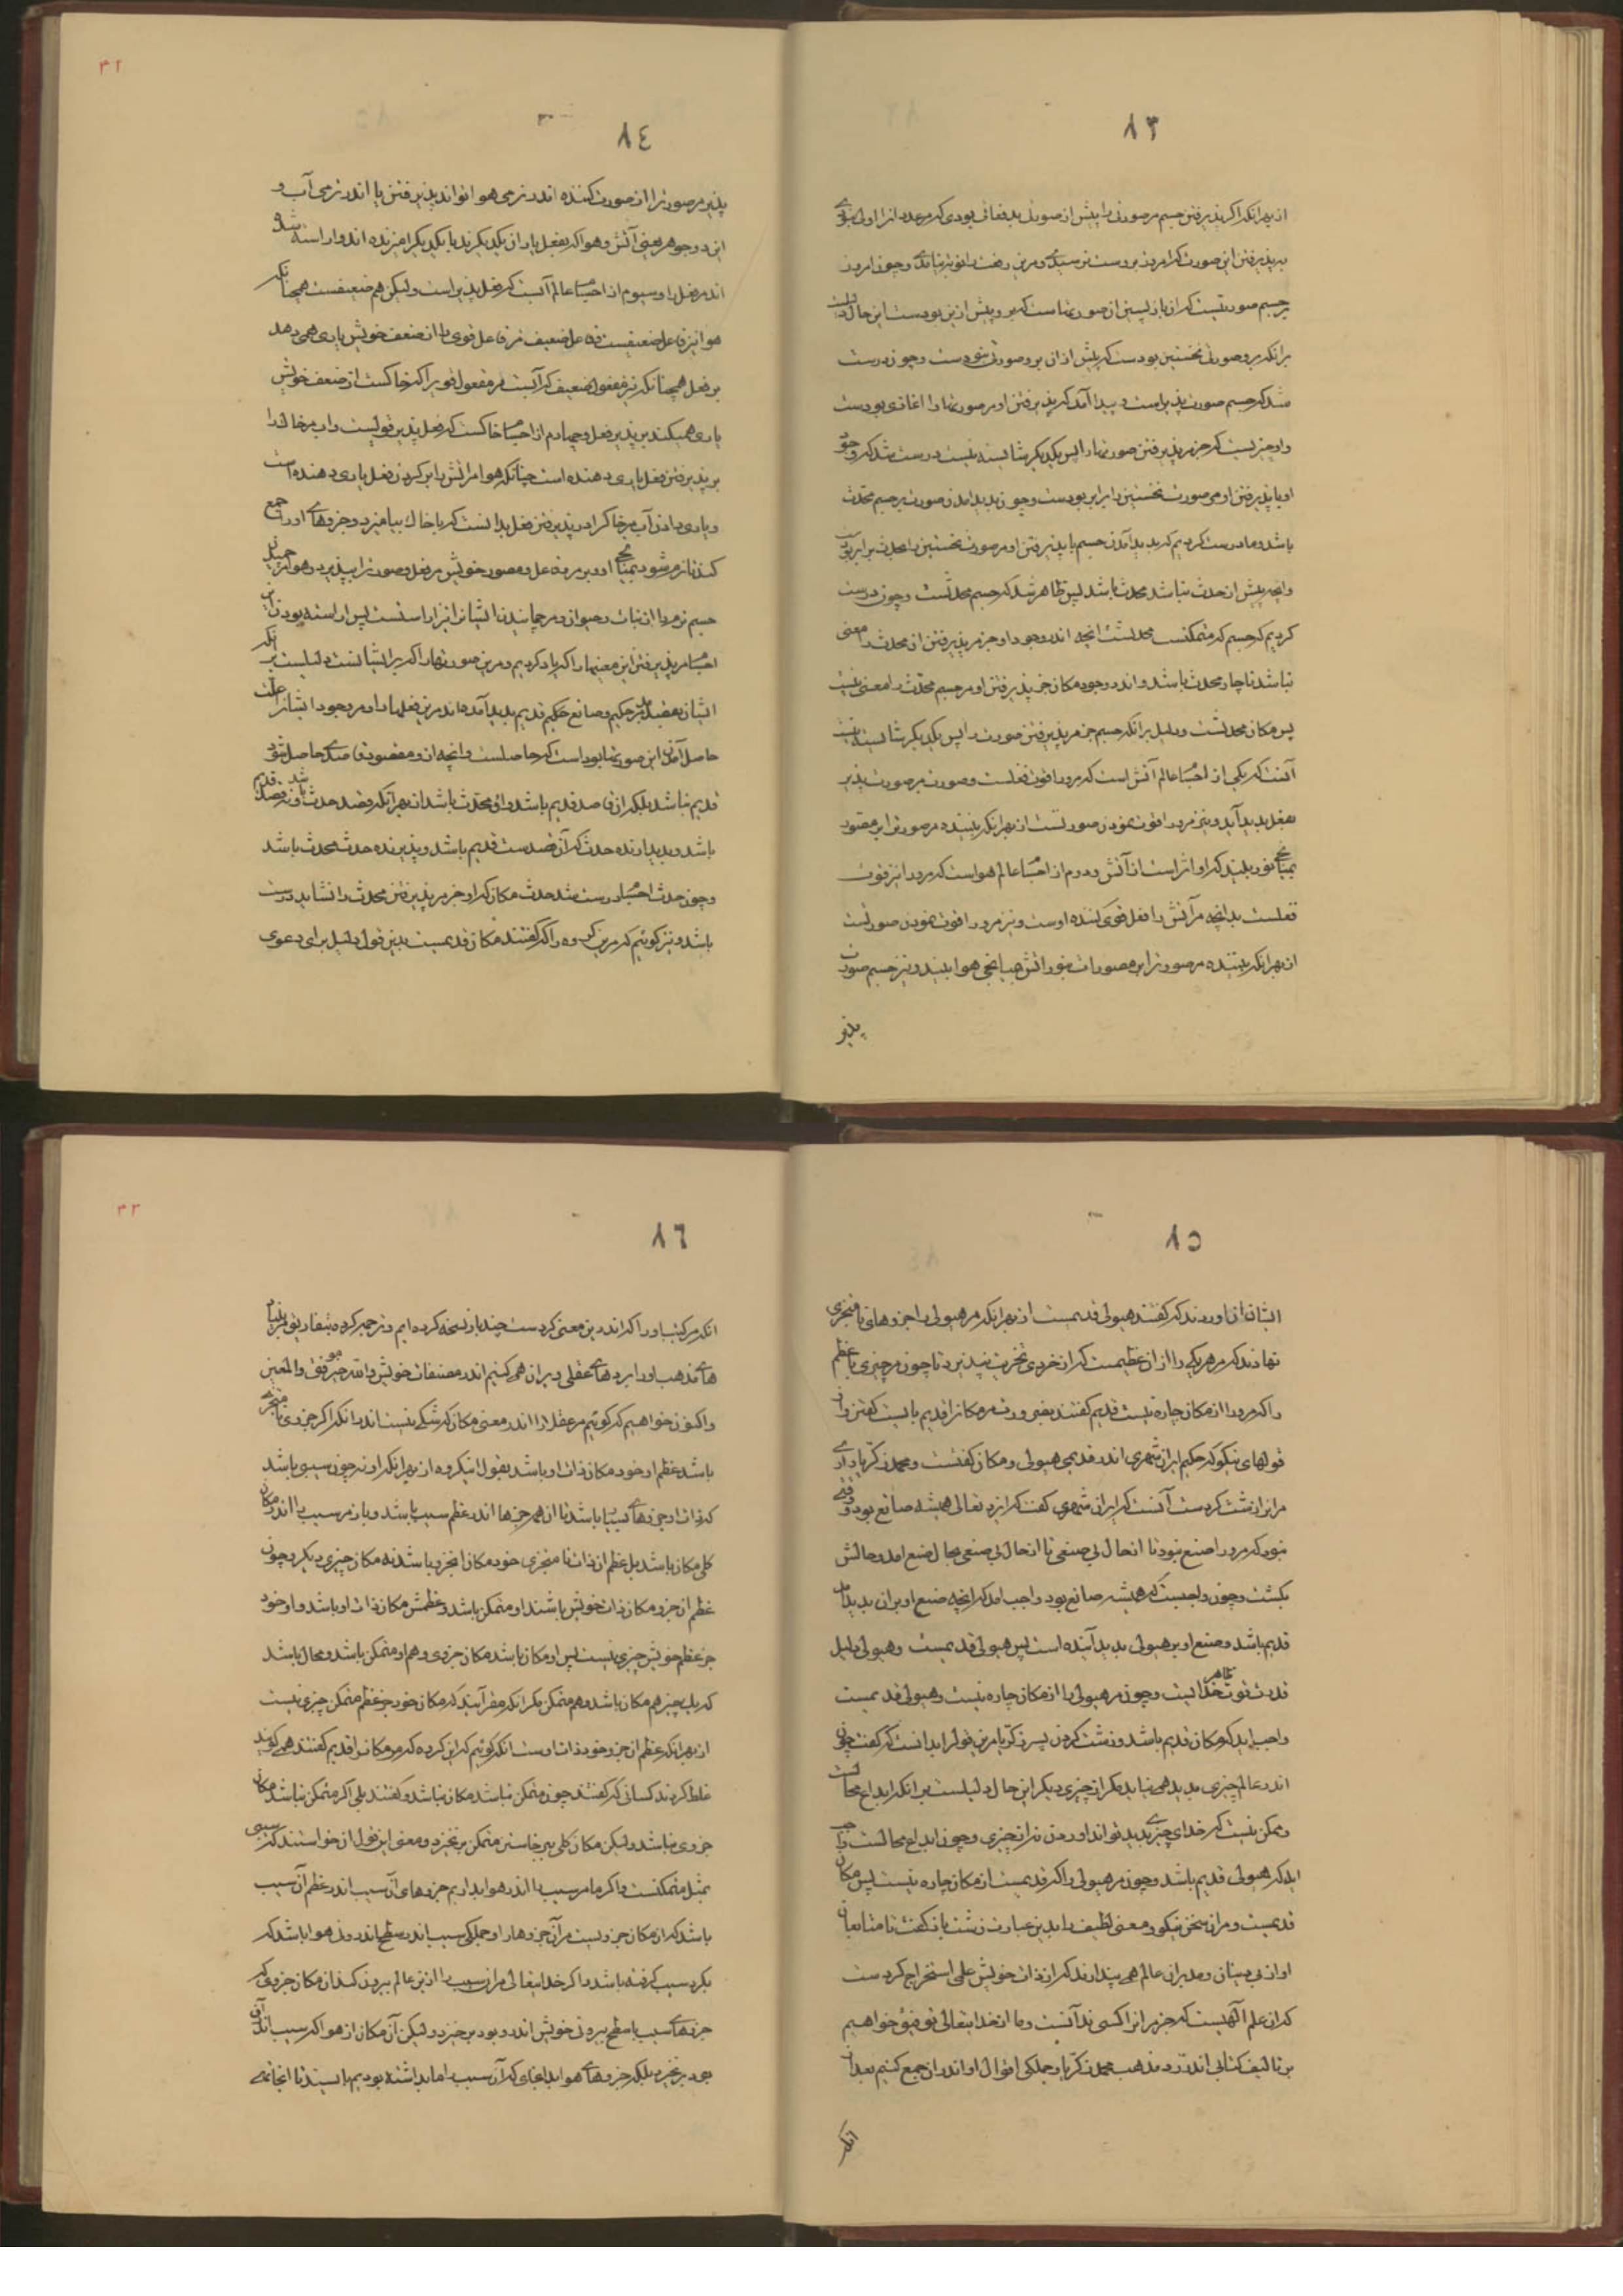 ٨٣
از بهر آنکه اگر پذیرفتن جسم مر صورتی را پیش از صورتی بدفعاتی بودی که مر عدد آنرا اولی نبودی
به پذیرفتن این صورت که امروز بر وست نرسیدی و مر این را نوبت نیامدی و چون امروز
بر جسم صورتیست که آن بازپسین از صورتهاست که بر و پیش ازین بودست این حال دلیلست
بر آنکه بر و صورتی نخستین بودست که پیش از آن بر و صورتی نبودست و چون درست
شد که جسم صورت پذیراست و پیدا آمد که پذیرفتن او مر صورتها را آغازی بودست
و او چیزیست که جز مر پذیرفتن صورتها را پس یکدیگر شایسته نیست درست شد که وجود
او با پذیرفتن او مر صورت نخستین را برابر بودست و چون پدید آمدن صورت بر جسم محدث
باشد و ما درست کردیم که پدید آمدن جسم با پذیرفتن او مر صورت نخستین را محدث برابر بود
و آنچه پیش از حدث نباشد محدث باشد پس ظاهر شد که جسم محدثست و چون درست
کردیم که جسم که متمکنست محدثست آنچه اندر وجود او جز مر پذیرفتن آن محدث را معنی
نباشد ناچار محدث باشد و اندر وجود مکان جز پذیرفتن او مر جسم محدث را معنی نیست
پس مکان محدثست و دلیل بر آنکه جسم جز مر پذیرفتن صورت را پس یکدیگر شایسته نیست
آنست که یکی از اجسام عالم آتش است که مر و را قوت فعلست و صورت مر صورت پذیر
بفعل پدید آید و نیز مر و را قوت نمودن صورتست از بهر آنکه بیننده مر صورت را بر مصور
بمیانجی نور بیند که او اثر است از آتش و دوم از اجسام عالم هواست که مر و را نیز قوت
فعلست بدانچه مر آتش را فعل قوی کننده اوست و نیز مر و را قوت نمودن صورتست
از بهر آنکه بیننده مر صورت را بر مصورات بنور آتش بمیانجی هوا بیند و نیز جسم صورت
پذیر
٤٢
٨٤
پذیر مر صورت را از صورت کننده اندر نرمی هوا تواند پذیرفتن یا اندر نرمی آب و
این دو جوهر یعنی آتش و هوا که بفعل یاران یکدیگرند با یکدیگر آمیزنده‌اند و آراسته شده
اندر فعل را و سیوم از اجسام عالم آبست که فعل پذیر است ولیکن هم ضعیفست همچنانکه
هوا نیز فاعل ضعیفست و فاعل ضعیف مر فاعل قوی را از ضعف خویش یاری همی دهد
بر فعل همچنانکه نیز مفعول ضعیف که آبست مر مفعول قوی را که خاکست از ضعف خویش
یاری همیکند بر پذیرفتن فعل و چهارم از اجسام خاکست که فعل پذیر قویست و آب مر خاک را
بر پذیرفتن فعل یاری دهنده است چنانکه هوا مر آتش را بر کردن فعل یاری دهنده است
و یاری دادن آب مر خاک را در پذیرفتن فعل بدانست که با خاک بیامیزد و جزوهای او را جمع
کند تا نرم شود بمیانجی او و بر مر فاعل و مصور خویش مر فعل و صورت را بپذیرد و هوا مر
جسم نرم را از نبات و حیوان و مر جنبانیدن ایشان را نیز آراستست پس آراسته بودن این
اجسام مر پذیرفتن این معنیها را که یاد کردیم و مر این صورتها را که بر ایشانست دلیلست بر آنکه
ایشان بقصد حکیم و صانع حکیم قدیم پدید آمده‌اند مر این فعلها را و مر وجود ایشان را علت
حاصل آمدن این صورتها بود است که حاصلست و آنچه او مقصود قاصدی حاصل شود
قدیم نباشد بلکه آن قاصد قدیم باشد و او محدث باشد از بهر آنکه قصد حدث باشد و نه قصد قدیم
باشد و پدید آورنده حدث که آن قصدست قدیم باشد و پذیرنده حدث محدث باشد
و چون حدث اجسام درست شد حدث مکان که او جز مر پذیرفتن محدث را نشاید درست
باشد و نیز گوئیم که مر این گروه را که گفتند مکان قدیمست بدین قول دلیل برای دعوی
٨٥
ایشان آن آوردند که گفتند هیولی قدیمست از بهر آنکه مر هیولی را جزوهای نامتجزی
نهادند که مر هر یکی را از آن عظیمست که از خردی تجزیت نپذیرد تا چون مر چیزی با عظم
را که مر و را از مکان چاره نیست قدیم گفتند بضرورت مر مکان را قدیم بایست گفتن و از
قولهای نیکو که حکیم ایران شهری اندر قدیمی هیولی و مکان گفتست و محمد زکریا رازی
مر آنرا زشت کردست آنست که ایران شهری گفت که ایزد تعالی همیشه صانع بود و وقتی
نبود که مر و را صنع نبود تا از حال بی صنعی تا از حال بی صنعی بحال صنع آمد و حالش
بگشت و چون واجبست که همیشه صانع بود واجب آمد که آنچه صنع او بر آن پدید آید
قدیم باشد و صنع او بر هیولی پدید آینده است پس هیولی قدیمست و هیولی دلیل
قدرت ظاهر خدایست و چون مر هیولی را از مکان چاره نیست و هیولی قدیمست
واجب آید که مکان قدیم باشد و زشت کردن پسر زکریا مر این قول را بدانست که گفت چون
اندر عالم چیزی پدید همی نیاید مگر از چیزی دیگر این حال دلیلست بر آنکه ابداع محالست
و ممکن نیست که خدای چیزی پدید تواند آوردن نه از چیزی و چون ابداع محالست واجب
آید که هیولی قدیم باشد و چون مر هیولی را که قدیمست از مکان چاره نیست پس مکان
قدیمست و مر آن سخن نیکو و معنی لطیف را بدین عبارت زشت باز گفت تا متابعان
او از بی دینان و مدبران عالم همی پندارند که از ذات خویش علمی استخراج کردست
که آن علم الهیست که جز مر آنرا کسی ندانست و ما از خدایتعالی توفیق خواهیم
بر تالیف کتابی اندر رد مذهب محمد زکریا و جملگی اقوال او اندر آن جمع کنیم بعد از
آنکه
٤٣
٨٦
آنکه مر کتب او را که اندرین معنی کردست چند بار نسخه کرده‌ایم و ترجمه کرده بتفاریق مر بنیاد
های مذهب او را بردهای عقلی ویران همی کنیم اندر مصنفات خویش والله خیر موفق والمعین
و اکنون خواهیم که گوئیم مر عقلا را اندر معنی مکان که شکی نیست اندر آنکه اگر جزوی نامتجزی
باشد عظم او خود مکان ذات او باشد بقول این گروه از بهر آنکه او نه چون سیبی باشد
که ذات او جزوهای سیب باشد تا از همه جزها اندر عظم سیب باشد و باز مر سیب را اندر مکان
کلی مکان باشد بل عظم آن ذات نامتجزی خود مکان آنجزو باشد نه مکان چیزی دیگر و چون
عظم آن جزو مکان ذات خویش باشد او متمکن باشد و عظمش مکان ذات او باشد و او خود
جز عظم خویش چیزی نیست پس او مکان باشد مکان جزوی و هم او متمکن باشد و محال باشد
که یک چیز هم مکان باشد و هم متمکن مگر آنکه مقر آیند که مکان خود جز عظم متمکن چیزی نیست
از بهر آنکه عظم آن جزو خود ذات اوست آنکه گوئیم که این گروه که مر مکان را قدیم گفتند همی گویند
غلط کردند کسانی که گفتند چون متمکن نباشد مکان نباشد و گفتند بلی اگر متمکن نباشد مکان
جزوی نباشد ولیکن مکان کلی ببرخاستن متمکن برنخیزد و معنی این قول آن خواستند که سیبی
بمثل متمکنست و اگر ما مر سیب را اندر هوا بداریم جزوهای آن سیب اندر عظم آن سیب
باشد که آن مکان جزویست مر آن جزوها را و جملگی سیب اندر سطح اندرونی هوا باشد که
بگرد سیب گرفته باشد و اگر خدایتعالی مر آن سیب را ازین عالم بیرون کند آن مکان جزوی که
جزوهای سیب با سطح بیرونی خویش اندرو بود برخیزد ولیکن آن مکان از هوا که سیب اندر آن
بود برنخیزد بلکه جزوهای هوا بدانجای که آن سیب را ما بداشته بودیم بایستد تا آنجای تهی